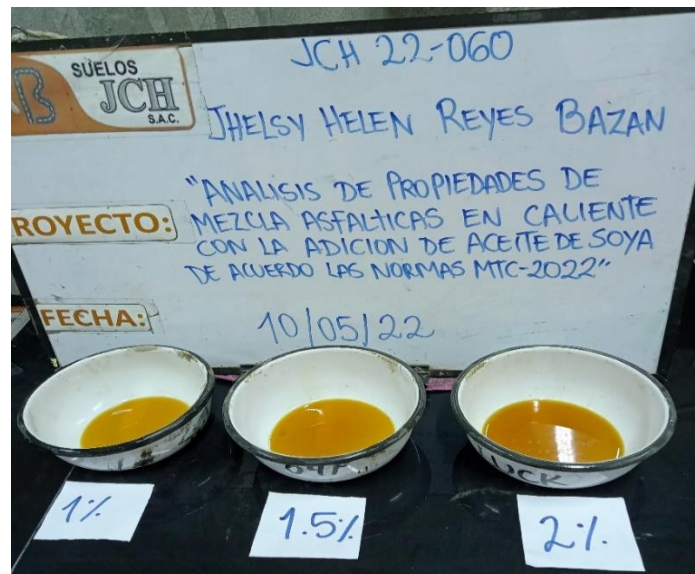 SUELOS
JCH
S.A.C.
JCH 22-060
JHELSY HELEN REYES BAZAN
ROYECTO:
"ANALISIS DE PROPIEDADES DE
MEZCLA ASFALTICAS EN CALIENTE
CON LA ADICION DE ACEITE DE SOYA
DE ACUERDO LAS NORMAS MTC-2022"
FECHA:
10/05/22
1%
1.5%
2%